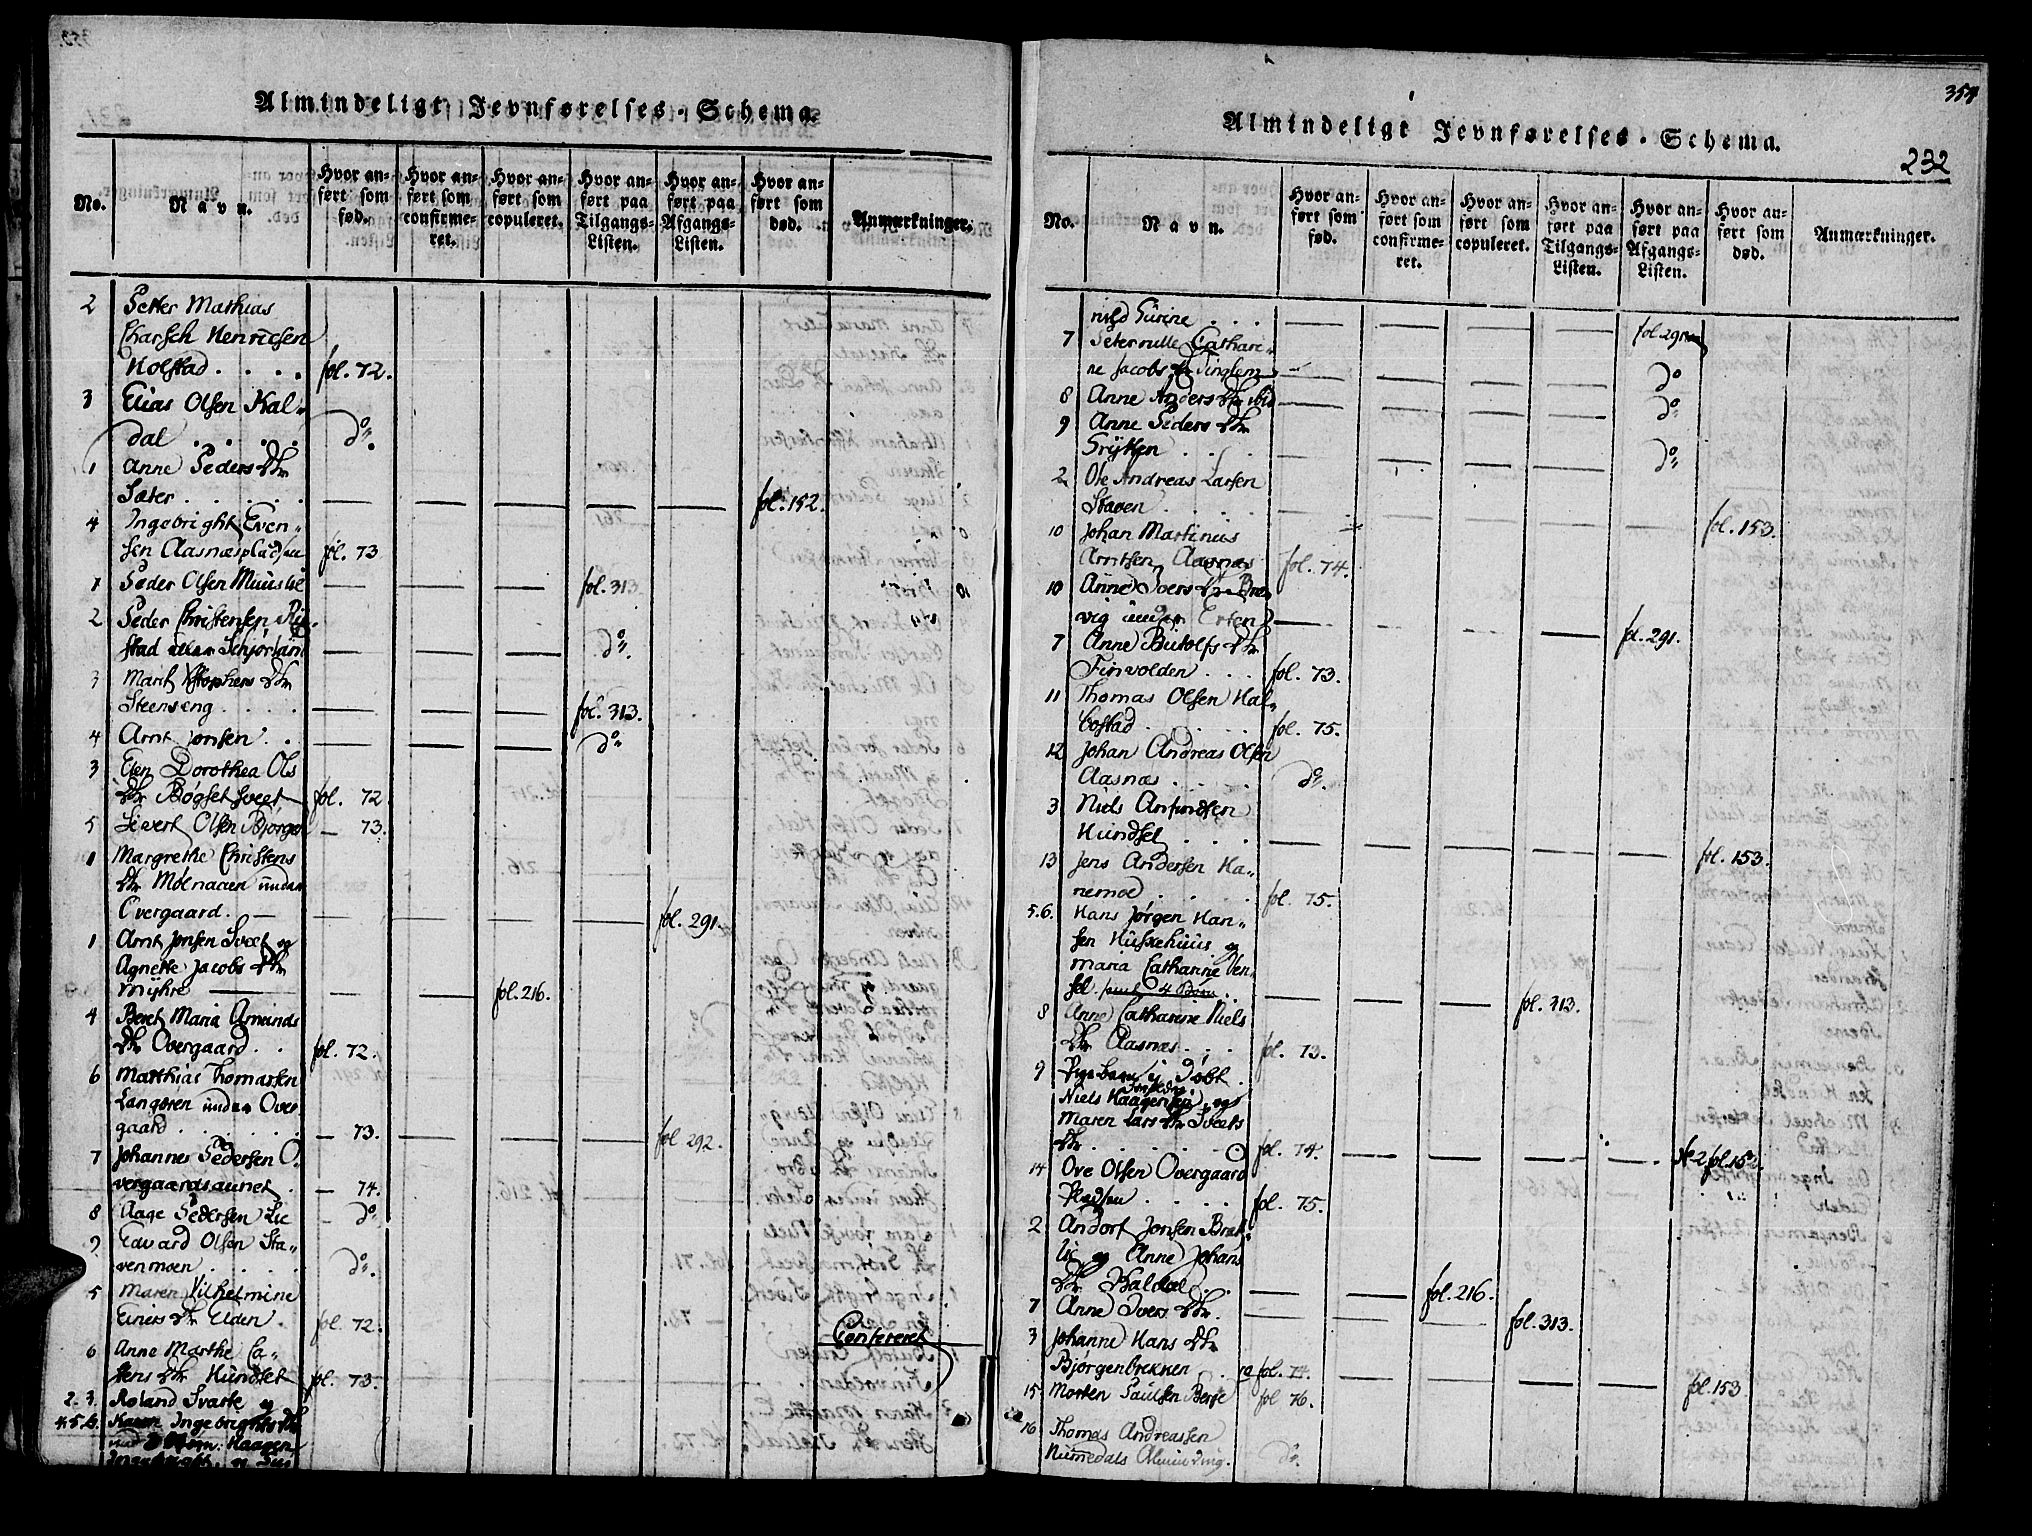 Almindeligt Jevnførelses-Schema.
No.
Navn.
Hvor anført som fød.
Hvor anført som confirmeret.
Hvor anført som copuleret.
Hvor anført paa Tilgangs-Listen.
Hvor anført paa Afgangs-Listen.
Hvor anført som død.
Anmærkninger.
2 Petter Mathias
Henricsen
Holstad . . . . fol. 72.
3 Elias Olsen Kal-
dal . . . . do.
1 Anne Peders Dtr
Sæter . . . . . — — — — — fol. 152.
4 Ingebright Even-
sen Aasnæsplads fol. 73
1 Peder Olsen — — — fol. 313
2 Peder Christensen
stad — — — do.
3 Marit Dtr
Steenseng . . . . — — — fol. 313.
4 Arnt Jonsen . . — — — do
3 Elen Dorothea Ols
Dtr Bøgset fol. 72
5 Sivert Olsen Bjørgen — 73.
1 Margrethe Christens
Dtr Moenaaen under
Overgaard. — — — — — fol. 291.
1 Arnt Jonsen Sveet og
Agnette Jacobs Dtr
Myhre — — — fol. 216.
4 Beret Maria Amunds
Dtr Overgaard . . fol. 72.
6 Matthias Thomassen
Langøren under Over
gaard . . . . . . — 73. — — — fol 292.
7 Johannes Pedersen O-
vergaardsaunet . — 74.
8 Aage Pedersen Lie — do
9 Edvard Olsen Sta-
venmoen . . . . do.
5 Maren Vilhelmine
Einers Dtr Elden . fol. 72.
6 Anne Marthe Ca-
stens Dtr Hundset fol. 73.
2. 3. Roland Svarte og
4. 5. 6. Karen Ingebrights Dtr
Haagen
Confereret
354
232
Almindeligt Jevnførelses-Schema.
No.
Navn.
Hvor anført som fød.
Hvor anført som confirmeret.
Hvor anført som copuleret.
Hvor anført paa Tilgangs-Listen.
Hvor anført paa Afgangs-Listen.
Hvor anført som død.
Anmærkninger.
Gurine . . . — — — — fol. 291
7 Peternille Cathari-
ne Jacobs Dtr — — — — do
8 Anne Anders Dtr ibid — — — — do
9 Anne Peders Dtr
. . . — — — — do
2 Ole Andreas Larsen
Staven . . . . — — — — — fol. 153.
10 Johan Martinus
Arntsen Aasnæs fol. 74.
10 Anne Ivers Dtr
vig under — — — — fol. 291.
7 Anne Budolfs Dtr
Finvolden . . . fol. 73.
11 Thomas Olsen Hal-
bostad . . . . fol. 75.
12 Johan Andreas Olsen
Aasnæs . . . . do.
3 Niels Arfindsen
Hundset . . . — — — — — fol. 153.
13 Jens Andersen Ha-
nemoe . . . fol. 75.
5.6. Hans Jørgen Han-
sen og
Maria Catharine
. . — — — fol. 313.
8 Anne Catharine Niels
Dtr Aasnæs . . . fol. 73.
9 Pigebarn ej døbt .
Niels Haagensen, og
Maren Lars Dtr Sveets
Dtr . . . . . fol. 74. — — — — No 2 fol. 152.
14 Ove Olsen Overgaard
Pladsen . . . . fol. 75.
2 Andor Jonsen Brat-
lie og Anne Johans
Dtr Kaldal . . — — fol. 216.
7 Anne Ivers Dtr . — — — fol. 313.
3 Johanne Hans Dtr
Bjørgenbrekken . . fol. 74. — — — — fol. 153
15 Morten Paulsen Berre fol 76.
16 Thomas Andreassen
Numedals Alminding. do.